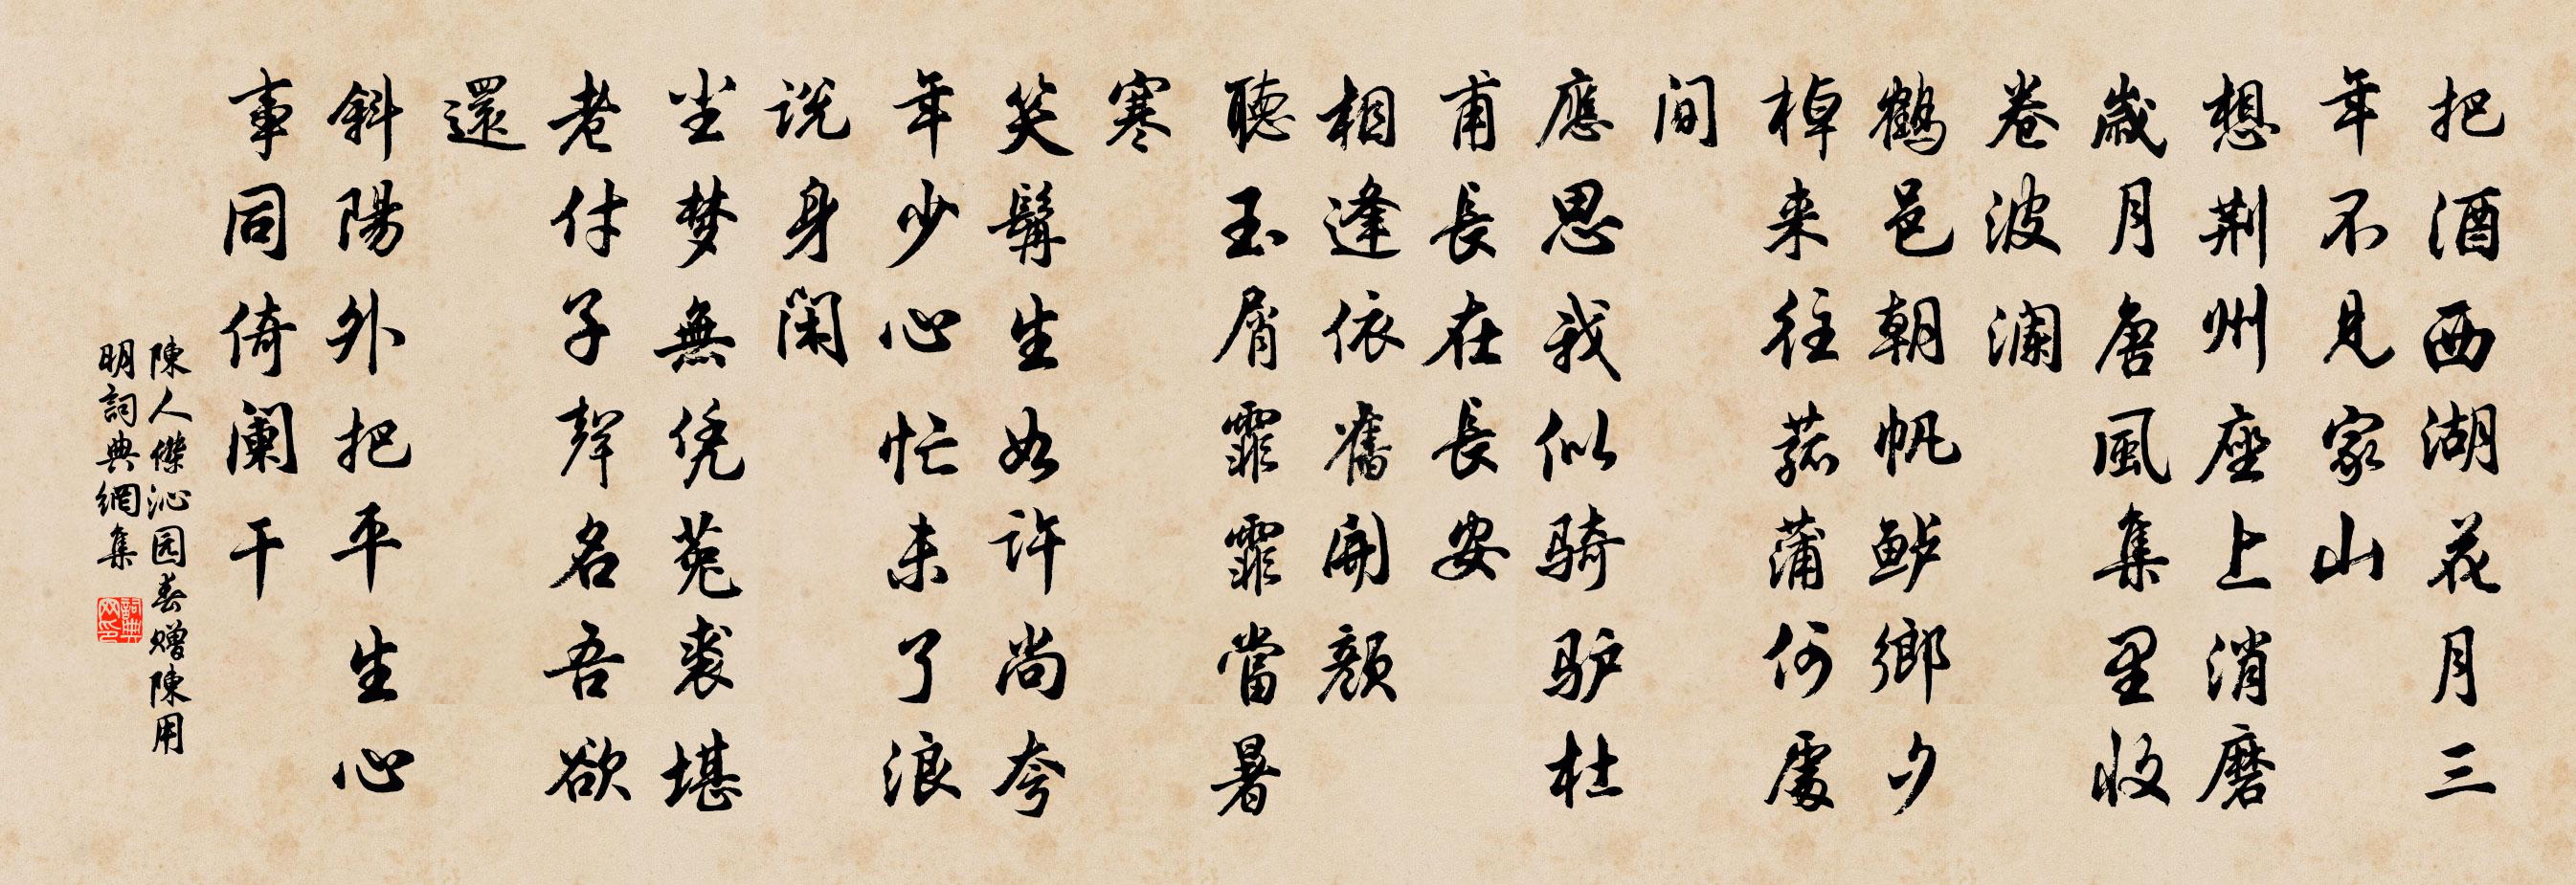 把酒西湖花月三
年不見家山
想荆州座上消磨
歲月唐風集里收
卷波澜
鶴邑朝帆鲈鄉夕
棹来往菰蒲何處
间
應思我似骑驴杜
甫長在長安
相逢依舊開顔
聽玉屑霏霏當暑
寒
笑鬓生如许尚夸
年少心忙未了浪
说身闲
尘梦無凭菟裘堪
老付子聲名吾欲
還
斜陽外把平生心
事同倚阑干
陳人傑沁园春赠陳用
明詞典網集
詞典
网印